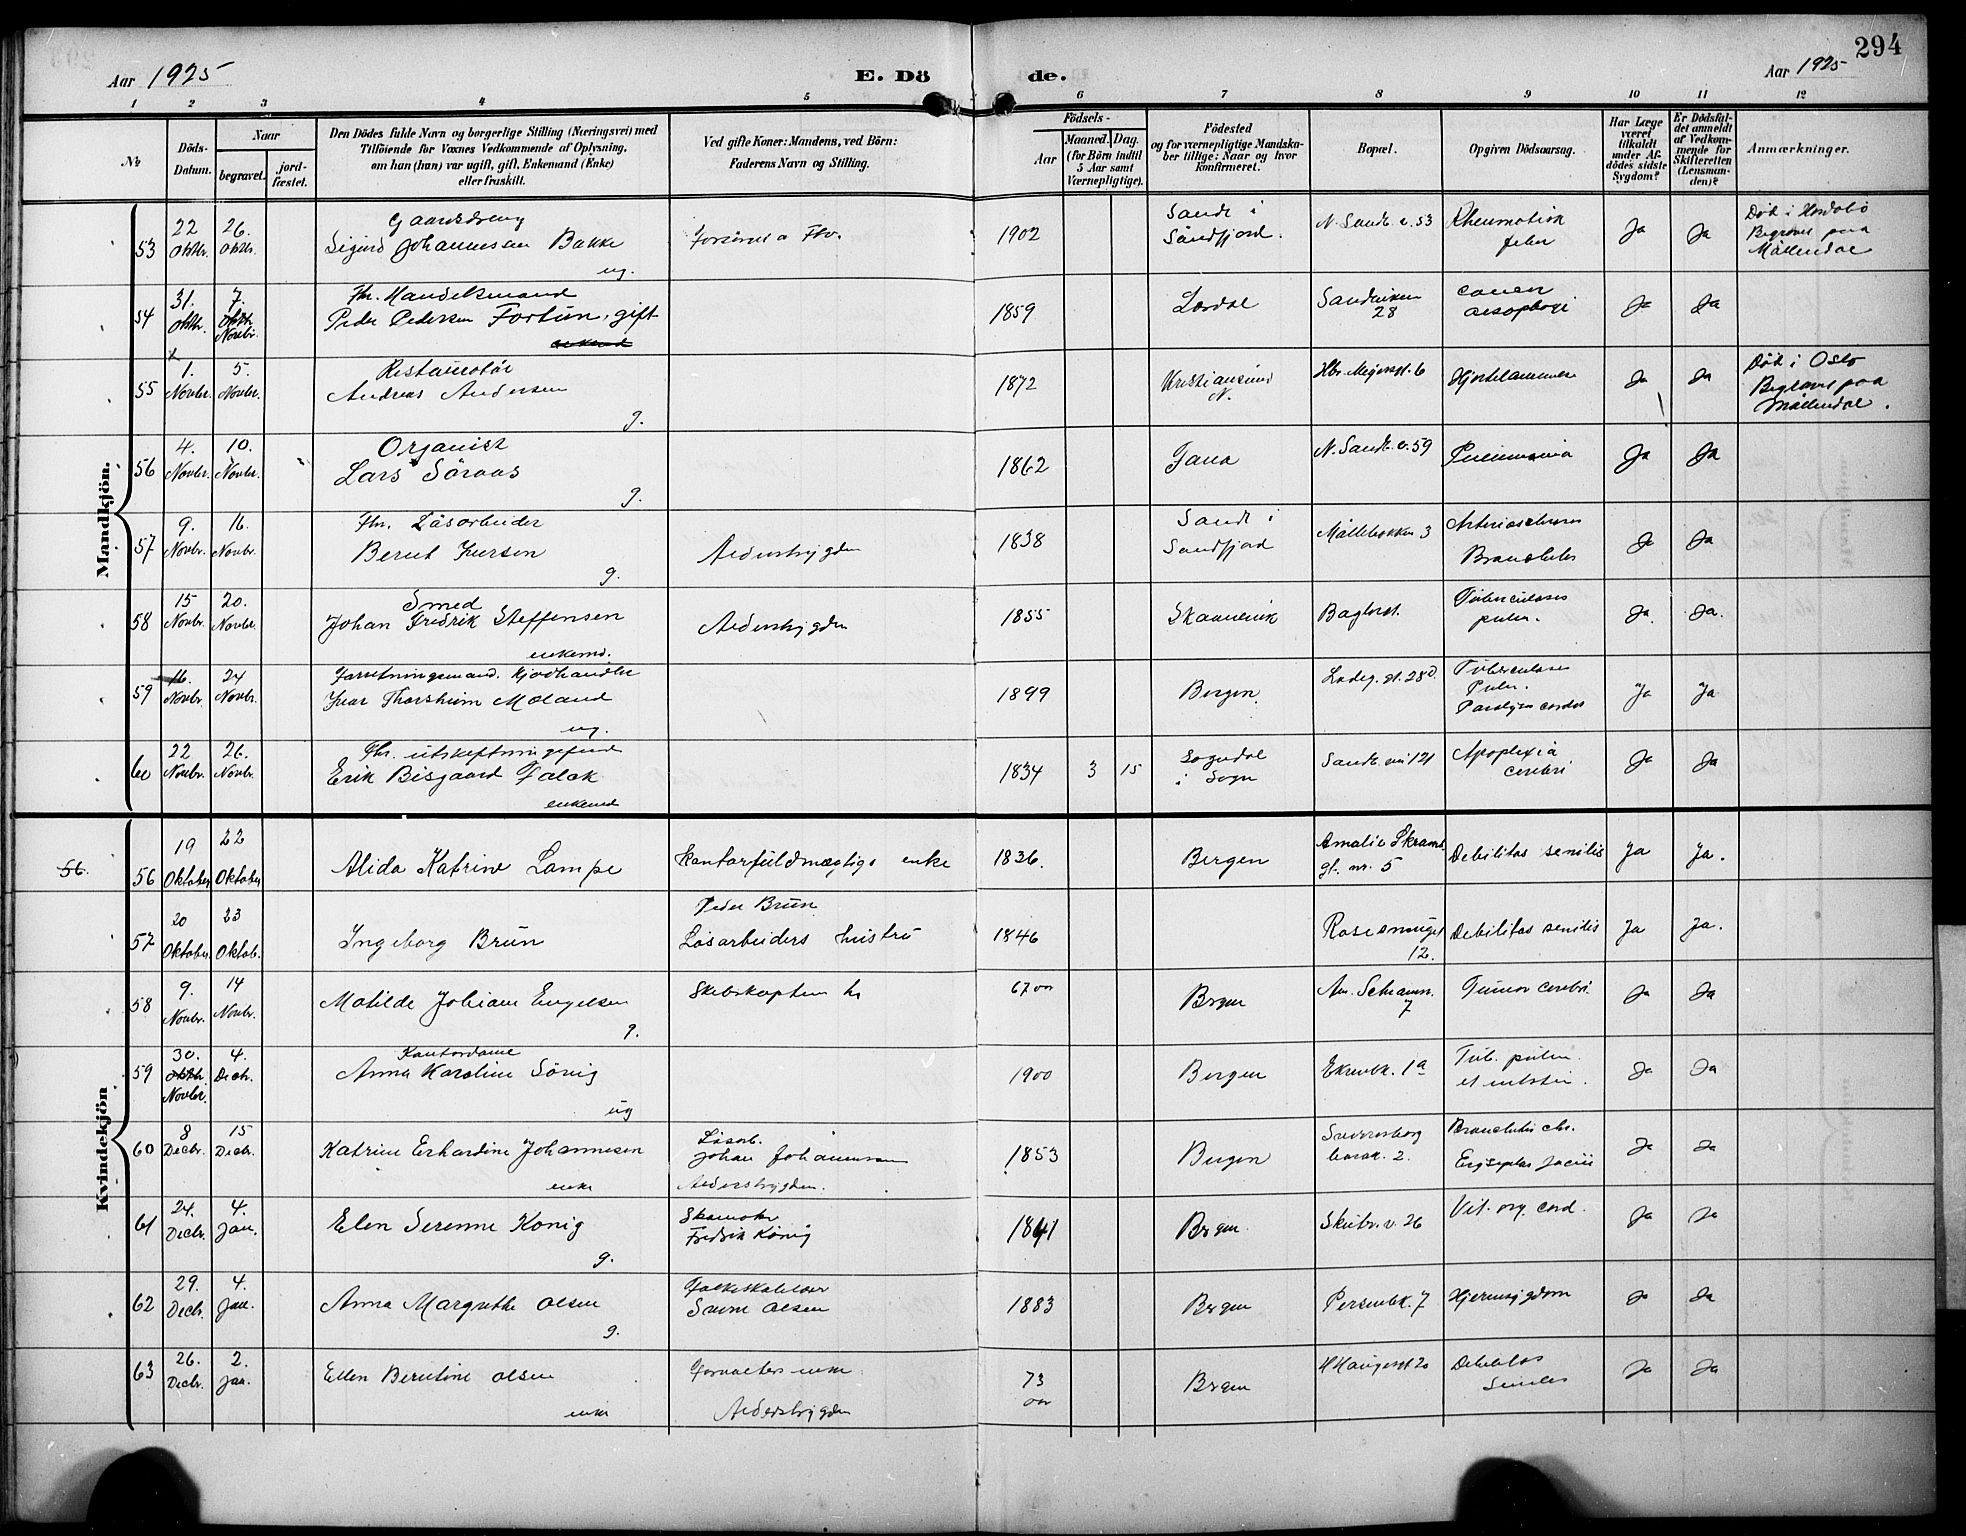 294
Aar 1925
E. Dö
de.
Aar 1925
1 2 3 4 5 6 7 8 9 10 11 12
No
Döds-Datum.
Naar
begravet.
jord-fæstet.
Den Dödes fulde Navn og borgerlige Stilling (Næringsvei) med
Tilföiende for Voxnes Vedkommende af Oplysning,
om han (hun) var ugift, gift, Enkemand (Enke)
eller fraskilt.
Ved gifte Koner: Mandens, ved Börn:
Faderens Navn og Stilling.
Födsels-
Aar
Maaned. Dag.
(for Börn indtil
5 Aar samt
Værnepligtige).
Födested
og for værnepligtige Mandska-
ber tillige: Naar og hvor
konfirmeret.
Bopæl.
Opgiven Dödsaarsag.
Har Læge
været
tilkaldt
under Af-
dödes sidste
Sygdom?
Er Dödsfal-
det anmeldt
af Vedkom-
mende for
Skifteretten
(Lensman-
den)?
Anmærkninger.
Mandkjön.
53
22 Oktbr.
26. Oktbr.
Gaardsdreng
Sigurd Johannesen Bakke
ug.
1902
Sande i
Sóndfjord.
N. Sandk. v. 53
Rheumatisk
feber
Ja
Ja
Död i
Begravet paa
Möllendal
54
31. Oktbr.
7. Oktbr Novbr.
Fhr. Handelsmand
Peder Pedersen Fortun, gift
1859
Lærdal
Sandviken
28
cancer
aesophagi
Ja
Ja
55
1. Novbr.
5. Novbr.
Restauratör
Andreas Andersen
g.
1872
Kristiansund
N.
Hbr. Meyersgt. 6
Hjertelammelse
Ja
Ja
Död i Oslo
Begravet paa
Möllendal.
56
4. Novbr.
10. Novbr.
Organist
Lars Söraas
g.
1862
Fana
N. Sandk. v. 59
Pneumonia
Ja
Ja
57
9. Novbr.
16. Novbr.
Fhr. Lösarbeider
Berent Iversen
g.
Alderstrygden
1838
Sande i
Sandfjord
Möllebakken 3
Bronchitis
Ja
Ja
58
15 Novbr.
20. Novbr.
Smed
Johan Fredrik Steffensen
enkemd.
Alderstrygden
1855
Skaanevik
Baglergt.
Tuberculoses
pulm.
Ja.
Ja.
59
16. Novbr.
24 Novbr.
Forretningsmand. Kjödhandler
Ivar Thorsheim Moland
ug.
1899
Bergen.
Ladeg. gt. 28d
Tuberculoses
Pulm.
Paralyse cordis
Ja
Ja
60
22 Novbr.
26. Novbr.
Erik Bisgaard Falck
enkemd
1834
3
15
Sogndal
i Sogn
Sandk. vei 121
Apoplexia
cerebri
Ja
Ja
Kvindekjön
56.
56
19 Oktober
22 Oktober
Alida Katrine Lampe
Kontorfuldmægtigs enke
1836.
Bergen
Amalie Skrams
gt. nr. 5
Debilitas senilis
Ja
Ja.
57
20 Oktober
23 Oktob.
Ingeborg Brun
Peder Brun
Lösarbeiders hustru
1846
Rosesmuget
12.
Debilitas senilis
Ja
Ja.
58
9. Novbr.
14 Novbr.
Matilde Johanne Engelsen
g.
Skibskaptein
67 aar
Bergen
Am. Schramm.
7
Tumor cerebri.
Ja
Ja
59
30. Oktbr. Novbr.
4. Decbr.
Kontordame
Anna Karoline Sörvig
ug
1900
Bergen
Ekrenbk. 1a
Tub. pulm.
et intestin.
Ja
Ja
60
8 Decbr.
15 Decbr.
Katrine Erhardine Johannesen
enke
Lösarb.
Johan Johannesen
Alderstrygden.
1853
Bergen
Sverresborg
barak. 2.
Bronchitis chr.
Erysipelas faciei
Ja
Ja
61
24. Decbr.
4. Jan.
Elen Serenne König
g.
Skomaker
Fredrik König
1841
Bergen
Skutev. v. 26
Vit. org. cord.
Ja
Ja
62
29. Decbr.
4. Jan.
Anna Margrethe Olsen
g.
Folkeskolelærer
Olsen
1883
Bergen
Persenbk. 7
Hjernesygdom
Ja
Ja
63
26. Decbr.
2. Jan.
Ellen Berntine Olsen
enke
Forvalters enke
Alderstrygden
73
aar
Bergen
H Haugesgt 20
Debilitas
Senilis
Ja
Ja